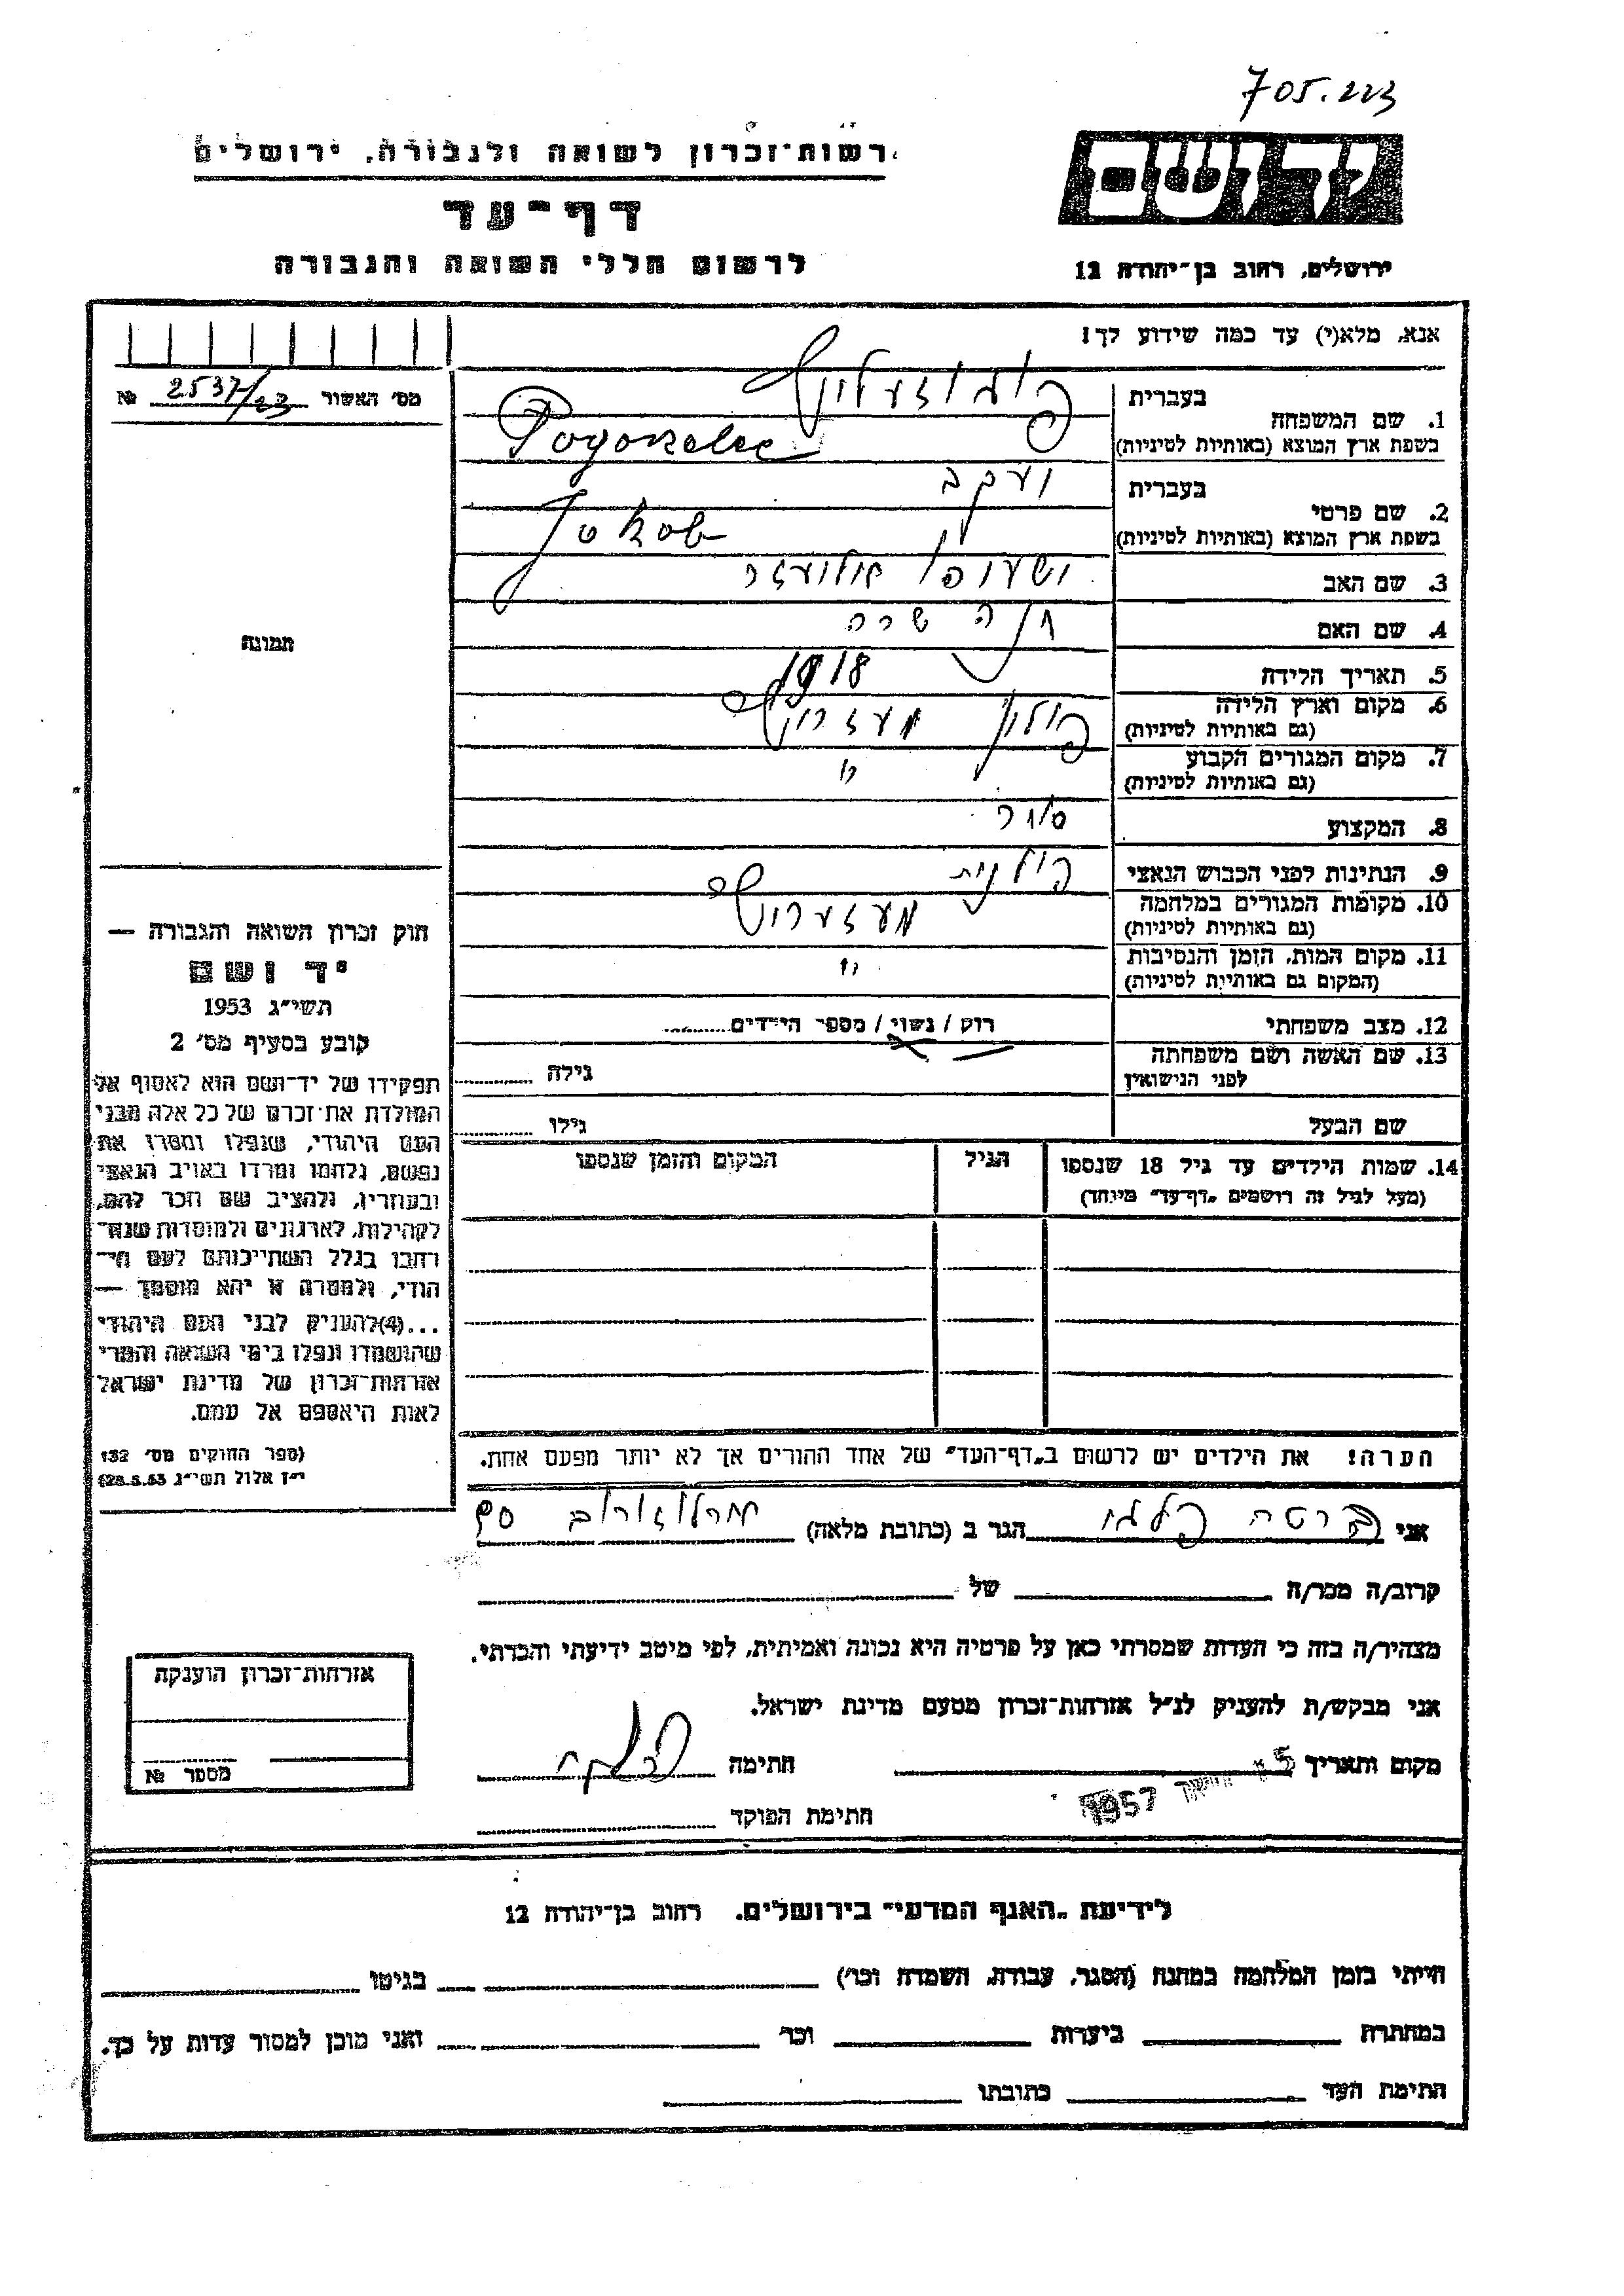 705.223
רשות־זכרון לשואה ולגבורה, ירושלים
דף־עד
לרשום חללי השואה והגבורה
יד ושם
ירושלים, רחוב בן־יהודה 12
אנא, מלא(י) עד כמה שידוע לך!
מס׳ האשור 2537/23 №
1. שם המשפחה
בעברית
בשפת ארץ המוצא (באותיות לטיניות) Pogorzelec
2. שם פרטי
בעברית יעקב
בשפת ארץ המוצא (באותיות לטיניות) Jakob
3. שם האב
4. שם האם חנה שרה
5. תאריך הלידה 1918
6. מקום וארץ הלידה פולין
(גם באותיות לטיניות)
7. מקום המגורים הקבוע "
(גם באותיות לטיניות)
8. המקצוע
9. הנתינות לפני הכבוש הנאצי פולנית
10. מקומות המגורים במלחמה
(גם באותיות לטיניות)
11. מקום המות, הזמן והנסיבות "
(המקום גם באותיות לטיניות)
12. מצב משפחתי רווק / נשוי / מספר הילדים
13. שם האשה ושם משפחתה גילה
לפני הנישואין
שם הבעל גילו
14. שמות הילדים עד גיל 18 שנספו הגיל המקום והזמן שנספו
(מעל לגיל זה רושמים „דף־עד״ מיוחד)
הערה! את הילדים יש לרשום ב„דף־העד״ של אחד ההורים אך לא יותר מפעם אחת.
תמונה
חוק זכרון השואה והגבורה —
יד ושם
תשי״ג 1953
קובע בסעיף מס׳ 2
תפקידו של יד־ושם הוא לאסוף אל
המולדת את־זכרם של כל אלה מבני
העם היהודי, שנפלו ומסרו את
נפשם, נלחמו ומרדו באויב הנאצי
ובעוזריו, ולהציב שם וזכר להם,
לקהילות, לארגונים ולמוסדות שנח־
רבו בגלל השתייכותם לעם הי־
הודי, ולמטרה זו יהא מוסמך —
...(4)להעניק לבני העם היהודי
שהושמדו ונפלו בימי השואה והמרי
אזרחות־זכרון של מדינת ישראל
לאות היאספם אל עמם.
(ספר החוקים מס׳ 132
י״ז אלול תשי״ג 28.8.53)
אני ברטה הגר ב (כתובת מלאה)
קרוב/ה מכר/ה של
מצהיר/ה בזה כי העדות שמסרתי כאן על פרטיה היא נכונה ואמיתית, לפי מיטב ידיעתי והכרתי.
אני מבקש/ת להעניק לנ״ל אזרחות־זכרון מטעם מדינת ישראל.
מקום ותאריך 5 1957 חתימה
חתימת הפוקד
אזרחות־זכרון הוענקה
מספר №
לידיעת „האגף המדעי״ בירושלים. רחוב בן־יהודה 12
הייתי בזמן המלחמה במחנה (הסגר, עבודה, השמדה וכו׳) בגיטו
במחתרת ביערות וכו׳ ואני מוכן למסור עדות על כך.
חתימת העד כתובתו